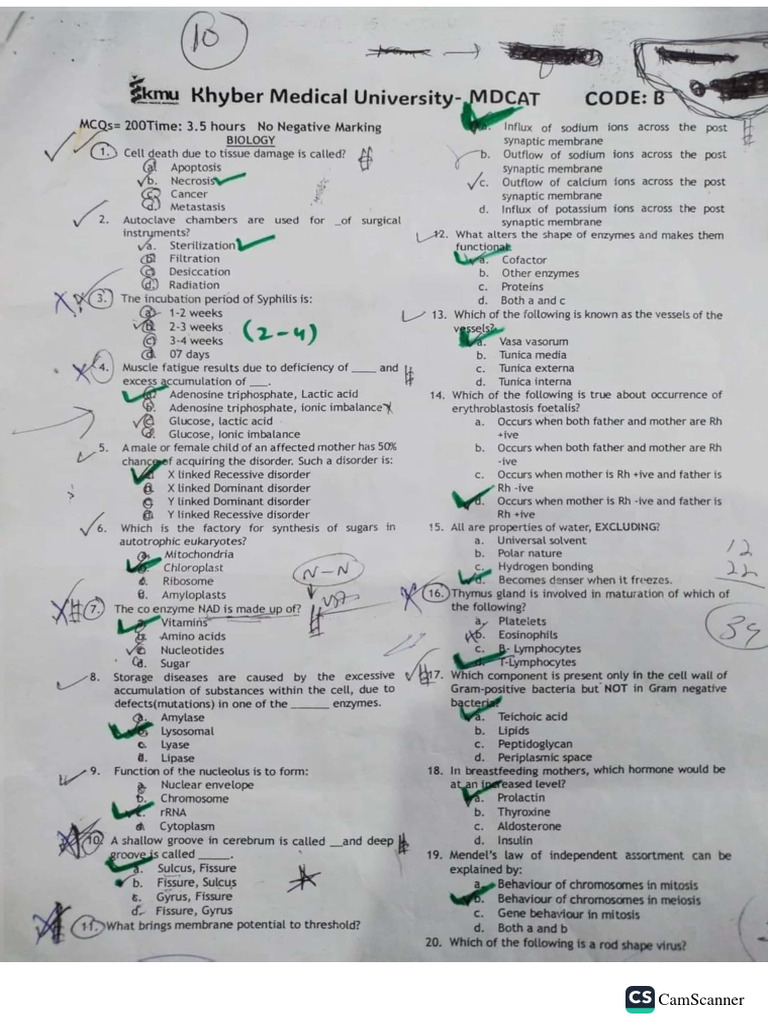 10
kmu Khyber Medical University- MDCAT CODE: B
MCQs= 200Time: 3.5 hours No Negative Marking
BIOLOGY
1. Cell death due to tissue damage is called?
a. Apoptosis
b. Necrosis
c. Cancer
d. Metastasis
2. Autoclave chambers are used for _of surgical
instruments?
a. Sterilization
b. Filtration
c. Desiccation
d. Radiation
3. The incubation period of Syphilis is:
a. 1-2 weeks
b. 2-3 weeks
(2-4)
c. 3-4 weeks
d. 07 days
4. Muscle fatigue results due to deficiency of ____ and
excess accumulation of ___.
a. Adenosine triphosphate, Lactic acid
b. Adenosine triphosphate, ionic imbalance
c. Glucose, lactic acid
d. Glucose, Ionic imbalance
5. A male or female child of an affected mother has 50%
chance of acquiring the disorder. Such a disorder is:
X linked Recessive disorder
X linked Dominant disorder
Y linked Dominant disorder
Y linked Recessive disorder
6. Which is the factory for synthesis of sugars in
autotrophic eukaryotes?
a. Mitochondria
b. Chloroplast
c. Ribosome
d. Amyloplasts
N-N
7. The co enzyme NAD is made up of?
a. Vitamins
b. Amino acids
c. Nucleotides
d. Sugar
8. Storage diseases are caused by the excessive
accumulation of substances within the cell, due to
defects(mutations) in one of the ______ enzymes.
a. Amylase
b. Lysosomal
c. Lyase
d. Lipase
9. Function of the nucleolus is to form:
a. Nuclear envelope
b. Chromosome
c. rRNA
d. Cytoplasm
10. A shallow groove in cerebrum is called __and deep
groove is called _____.
a. Sulcus, Fissure
b. Fissure, Sulcus
c. Gyrus, Fissure
d. Fissure, Gyrus
11. What brings membrane potential to threshold?
a. Influx of sodium ions across the post
synaptic membrane
b. Outflow of sodium ions across the post
synaptic membrane
c. Outflow of calcium ions across the post
synaptic membrane
d. Influx of potassium ions across the post
synaptic membrane
12. What alters the shape of enzymes and makes them
functional:
a. Cofactor
b. Other enzymes
c. Proteins
d. Both a and c
13. Which of the following is known as the vessels of the
vessels?
a. Vasa vasorum
b. Tunica media
c. Tunica externa
d. Tunica interna
14. Which of the following is true about occurrence of
erythroblastosis foetalis?
a. Occurs when both father and mother are Rh
+ive
b. Occurs when both father and mother are Rh
-ive
c. Occurs when mother is Rh +ive and father is
Rh -ive
d. Occurs when mother is Rh -ive and father is
Rh +ive
15. All are properties of water, EXCLUDING?
a. Universal solvent
b. Polar nature
c. Hydrogen bonding
d. Becomes denser when it freezes.
12
22
16. Thymus gland is involved in maturation of which of
the following?
a. Platelets
b. Eosinophils
c. B- Lymphocytes
T-Lymphocytes
17. Which component is present only in the cell wall of
Gram-positive bacteria but NOT in Gram negative
bacteria?
a. Teichoic acid
b. Lipids
c. Peptidoglycan
d. Periplasmic space
18. In breastfeeding mothers, which hormone would be
at an increased level?
a. Prolactin
b. Thyroxine
c. Aldosterone
d. Insulin
19. Mendel's law of independent assortment can be
explained by:
a. Behaviour of chromosomes in mitosis
b. Behaviour of chromosomes in meiosis
c. Gene behaviour in mitosis
d. Both a and b
20. Which of the following is a rod shape virus?
CS CamScanner